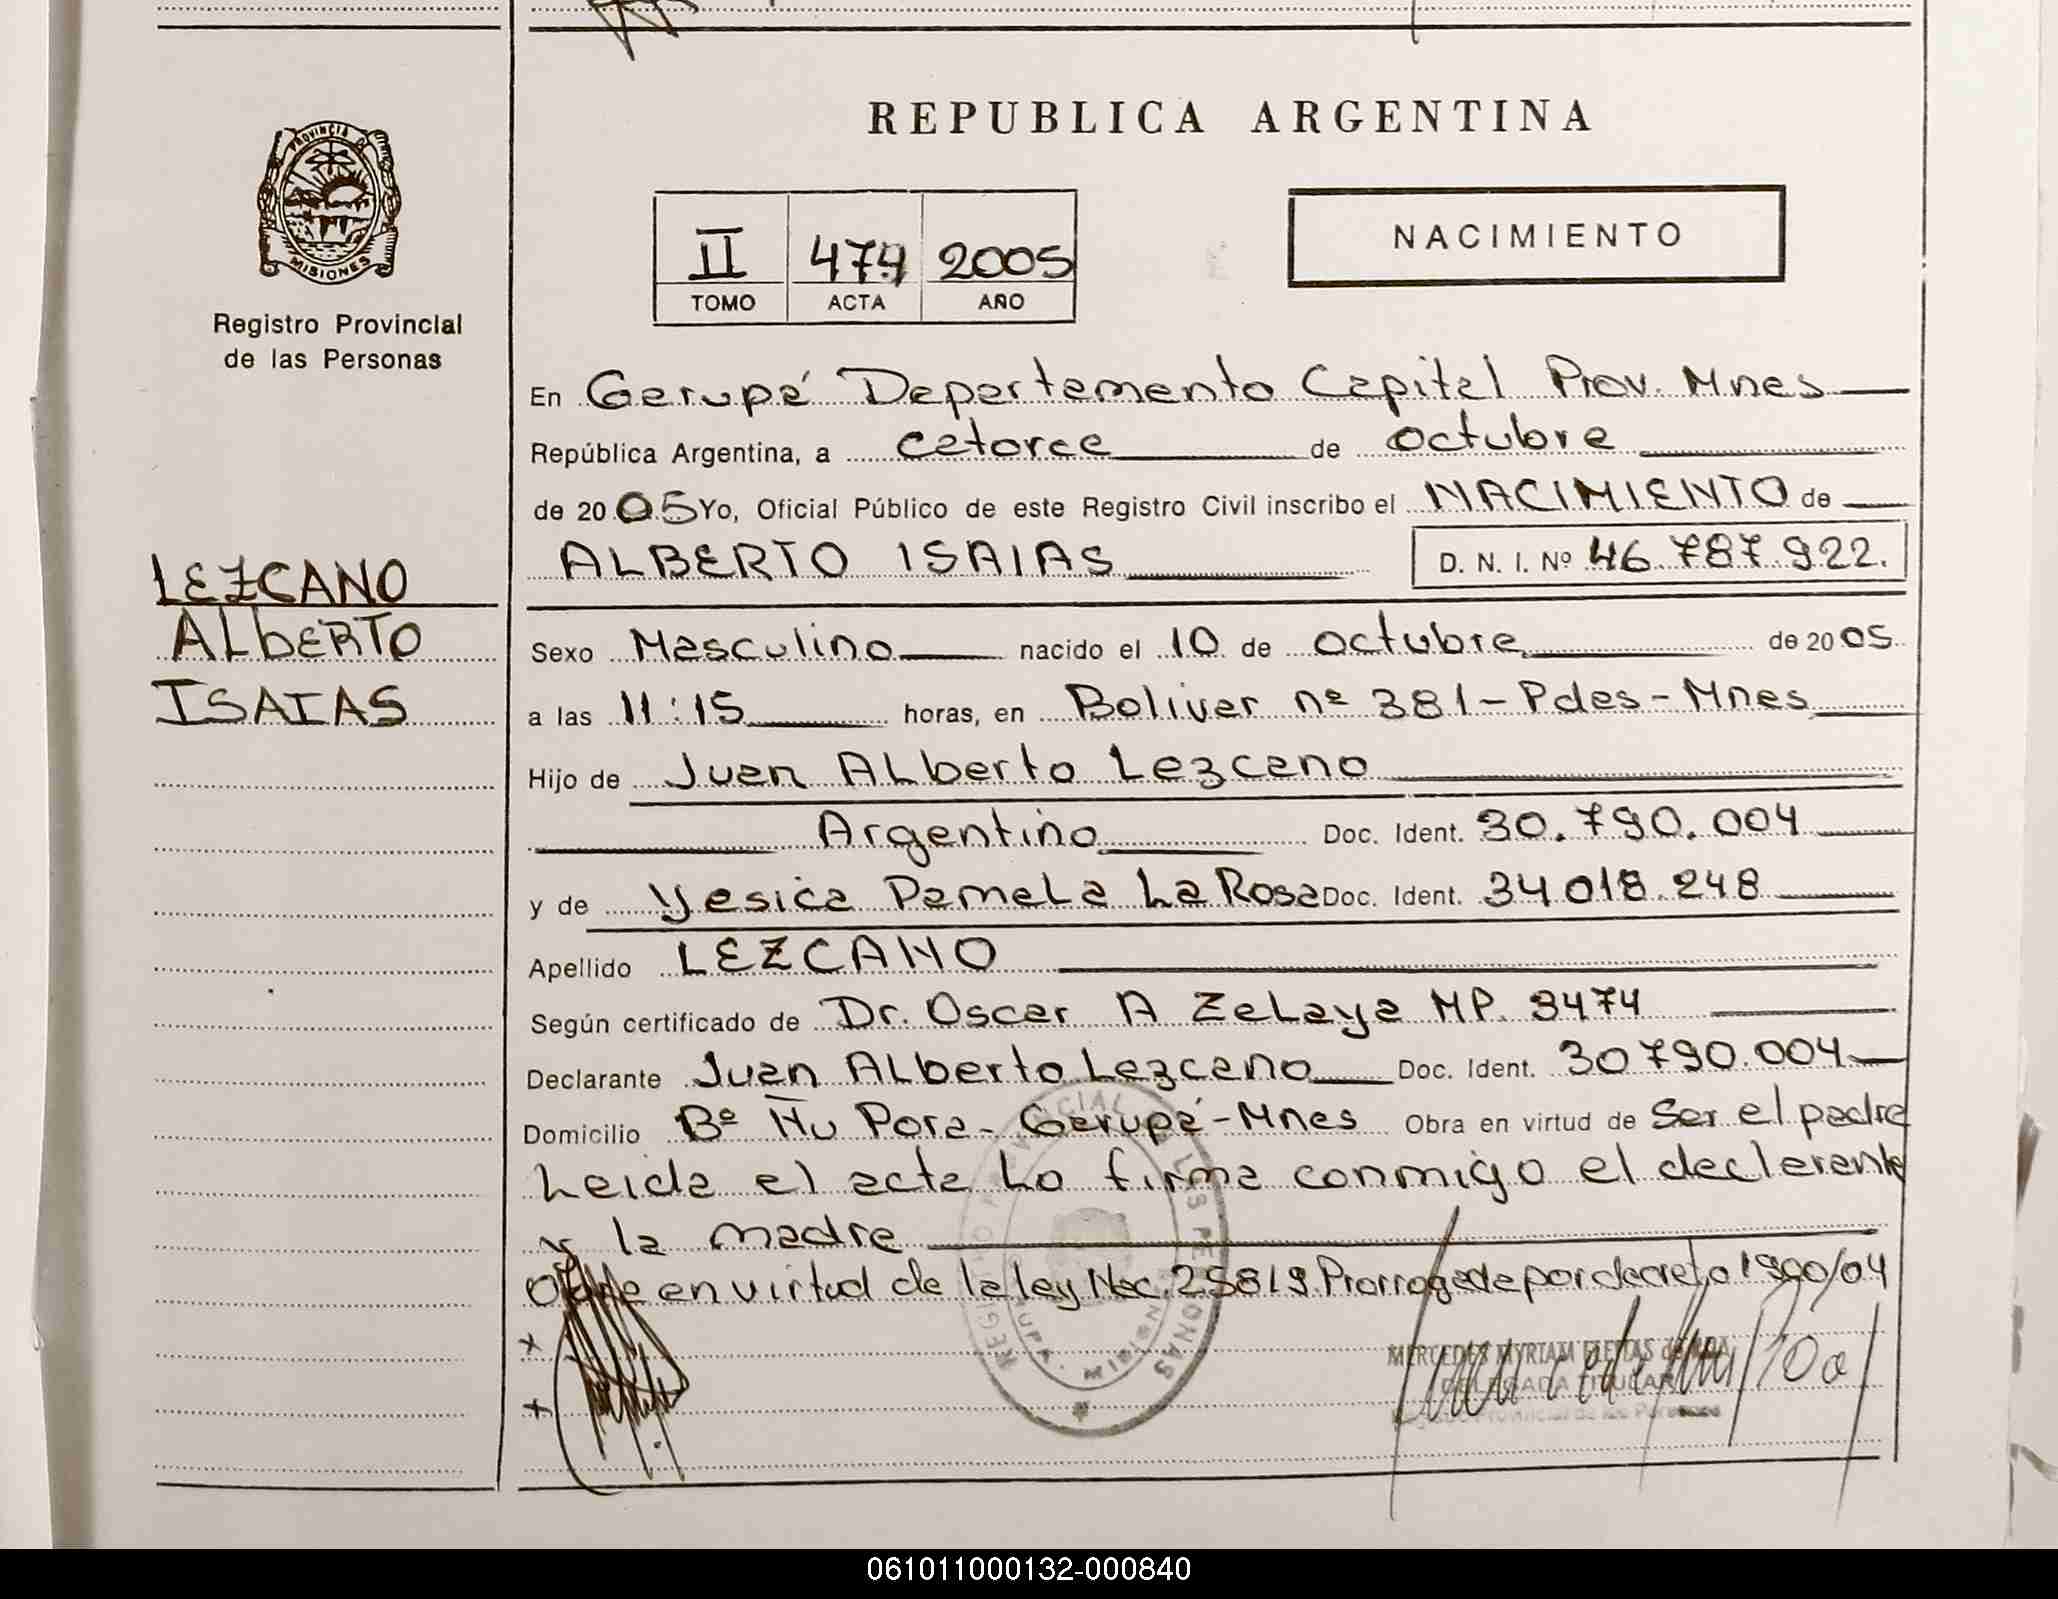 REPUBLICA ARGENTINA
PROVINCIA D
MISIONES
Registro Provincial
de las Personas
II 474 2005
TOMO ACTA AÑO
NACIMIENTO
En Garupá Departamento Capital Prov. Mnes
República Argentina, a catorce de octubre
de 2005 Yo, Oficial Público de este Registro Civil inscribo el NACIMIENTO de
ALBERTO ISAIAS D. N. I. Nº 46.787.922.
LEZCANO
ALbERTO
ISAIAS
Sexo Masculino nacido el 10 de octubre de 2005
a las 11:15 horas, en Bolivar nº 381 - Pdas - Mnes
Hijo de Juan ALberto Lezcano
Argentino Doc. Ident. 30.790.004
y de Yesica PameLa La Rosa Doc. Ident. 34018.248
Apellido LEZCANO
Según certificado de Dr. Oscar A ZeLaya MP. 3474
Declarante Juan ALberto Lezcano Doc. Ident. 30790.004
Domicilio Bº Ñu Pora - Garupá - Mnes Obra en virtud de Ser el padre
Leida el acta La firma conmigo el declarante
y la madre
Obra en virtud de la ley Nac. 25819. Prorrogada por decreto 1990/04
MERCEDES MYRIAM
DELEGADA TITULAR
Registro Provincial de las Personas
061011000132-000840